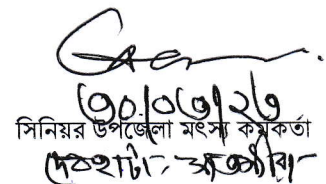 ৩০/০৩/২৩
সিনিয়র উপজেলা মৎস্য কর্মকর্তা
দেবহাটা, সাতক্ষীরা